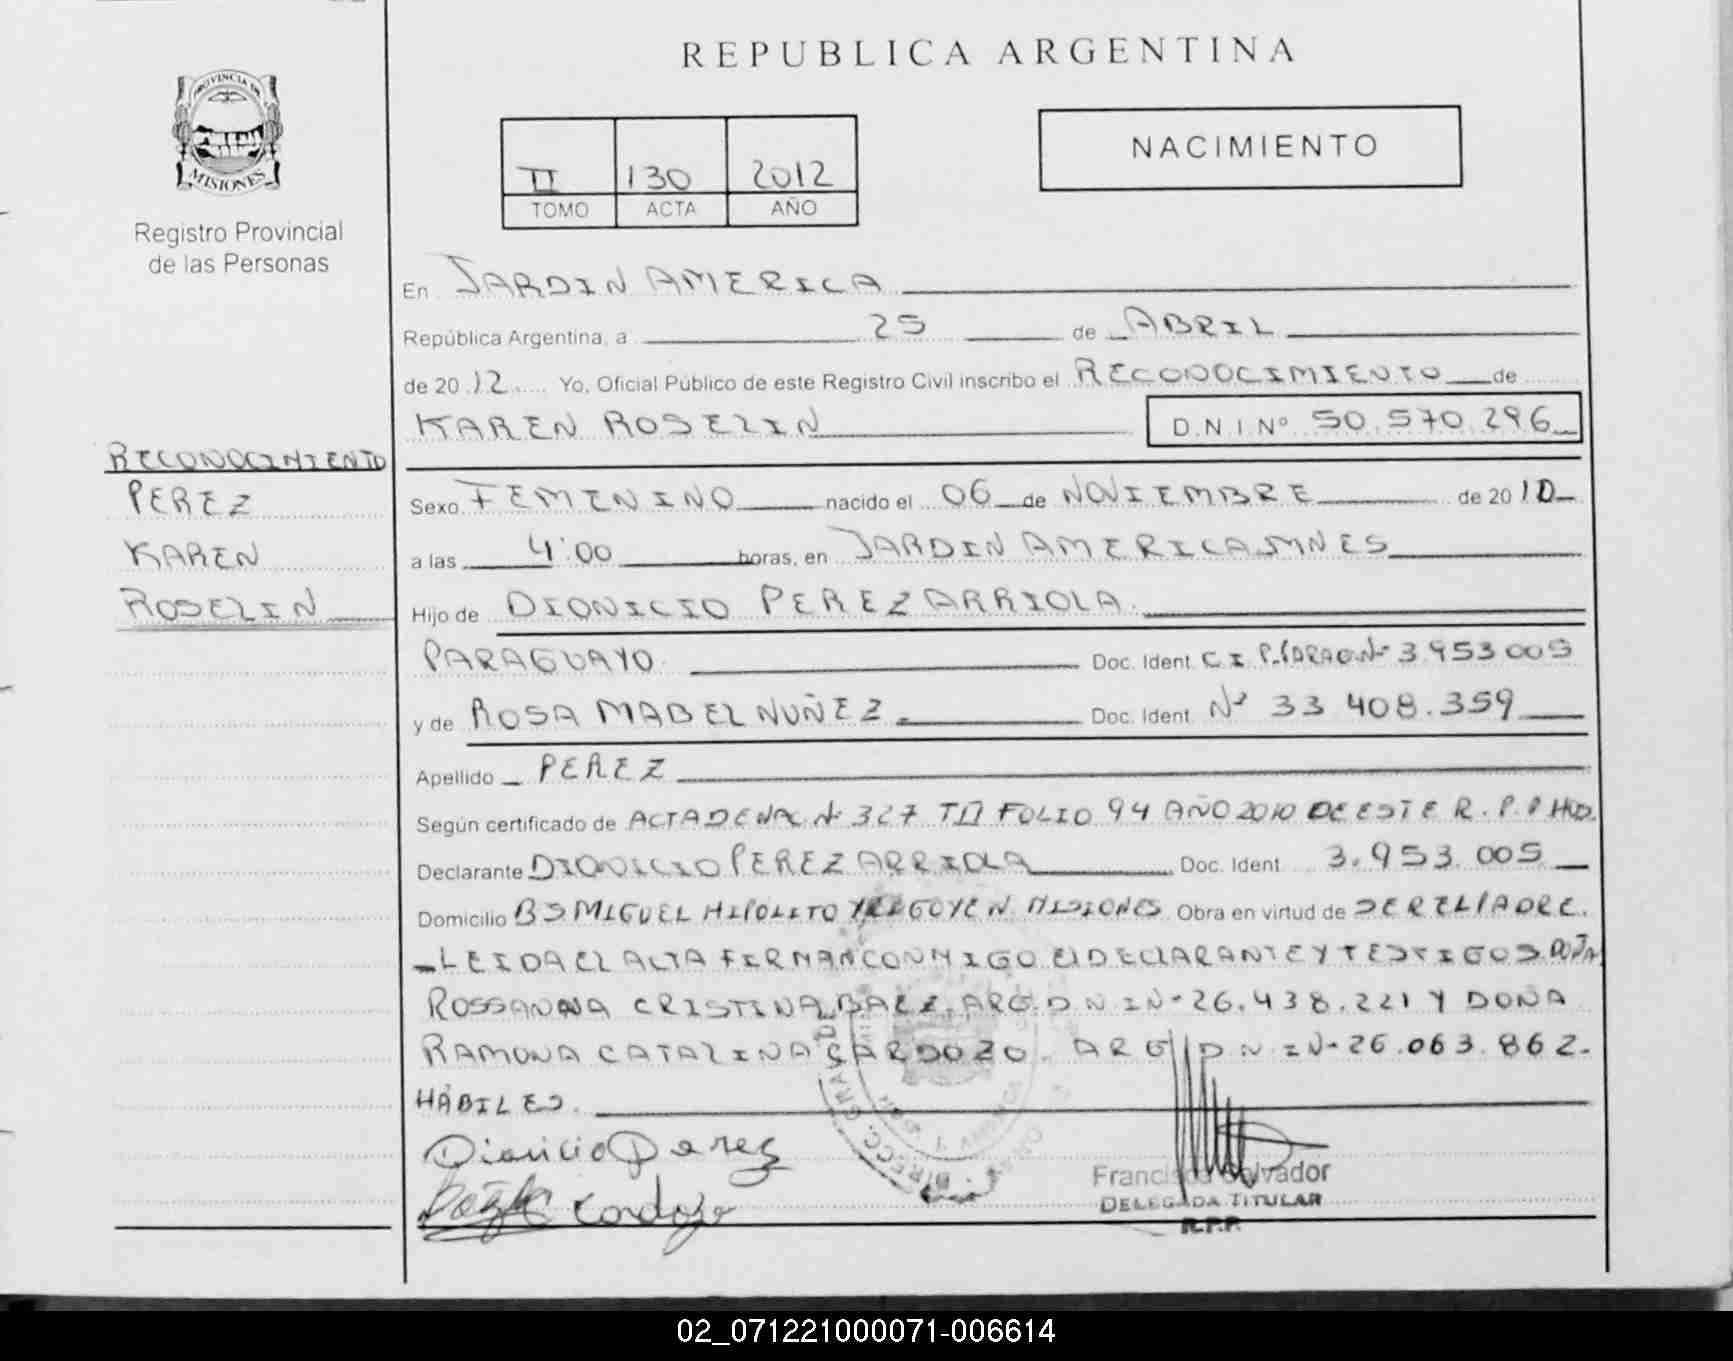 REPUBLICA ARGENTINA
PROVINCIA DE
MISIONES
Registro Provincial
de las Personas
NACIMIENTO
II 130 2012
TOMO ACTA AÑO
En JARDIN AMERICA
República Argentina, a 25 de ABRIL
de 2012 Yo, Oficial Público de este Registro Civil inscribo el RECONOCIMIENTO de
KAREN ROSELIN D.N.I. Nº 50.570.296
RECONOCIMIENTO
PEREZ
KAREN
ROSELIN
Sexo FEMENINO nacido el 06 de NOVIEMBRE de 2010
a las 4:00 horas, en JARDIN AMERICA MNES
Hijo de DIONICIO PEREZ ARRIOLA
PARAGUAYO Doc. Ident. C I PARAG Nº 3.953.005
y de ROSA MABEL NUÑEZ Doc. Ident. Nº 33.408.359
Apellido PEREZ
Según certificado de ACTA DE NAC Nº 327 TII FOLIO 94 AÑO 2010 DE ESTE R.P.P
Declarante DIONICIO PEREZ ARRIOLA Doc. Ident. 3.953.005
Domicilio Bº SMIGUEL HIPOLITO YRIGOYEN MISIONES Obra en virtud de SER EL PADRE.
LEIDA EL ACTA FIRMAN CONMIGO EL DECLARANTE Y TESTIGOS DOÑA
ROSSANNA CRISTINA BAEZ, ARG. D N I Nº 26.438.221 Y DOÑA
RAMONA CATALINA CARDOZO. ARG D N I Nº 26.063.862.
HÁBILES.
Dionicio Perez
Cardozo
Francisca Salvador
DELEGADA TITULAR
R.P.P.
02_071221000071-006614